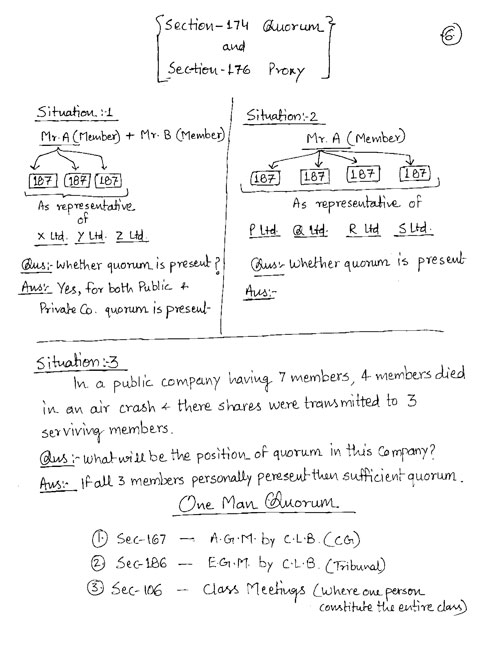 Section-174 Quorum
and
Section-176 Proxy
6
Situation:-1
Mr. A (Member) + Mr. B (Member)
187 187 187
As representative
of
X Ltd. Y Ltd. Z Ltd.
Qus:- Whether quorum is present?
Ans:- Yes, for both Public &
Private Co. quorum is present-
Situation:-2
Mr. A (Member)
187 187 187 187
As representative of
P Ltd. Q Ltd. R Ltd S Ltd.
Qus:- Whether quorum is present
Ans:-
Situation:-3
In a public company having 7 members, 4 members died
in an air crash & there shares were transmitted to 3
serviving members.
Qus:- What will be the position of quorum in this Company?
Ans:- If all 3 members personally peresent then sufficient quorum.
One Man Quorum.
1. Sec-167 — A.G.M. by C.L.B. (CG)
2. Sec-186 — E.G.M. by C.L.B. (Tribunal)
3. Sec-106 — Class Meetings (Where one person
constitute the entire class)